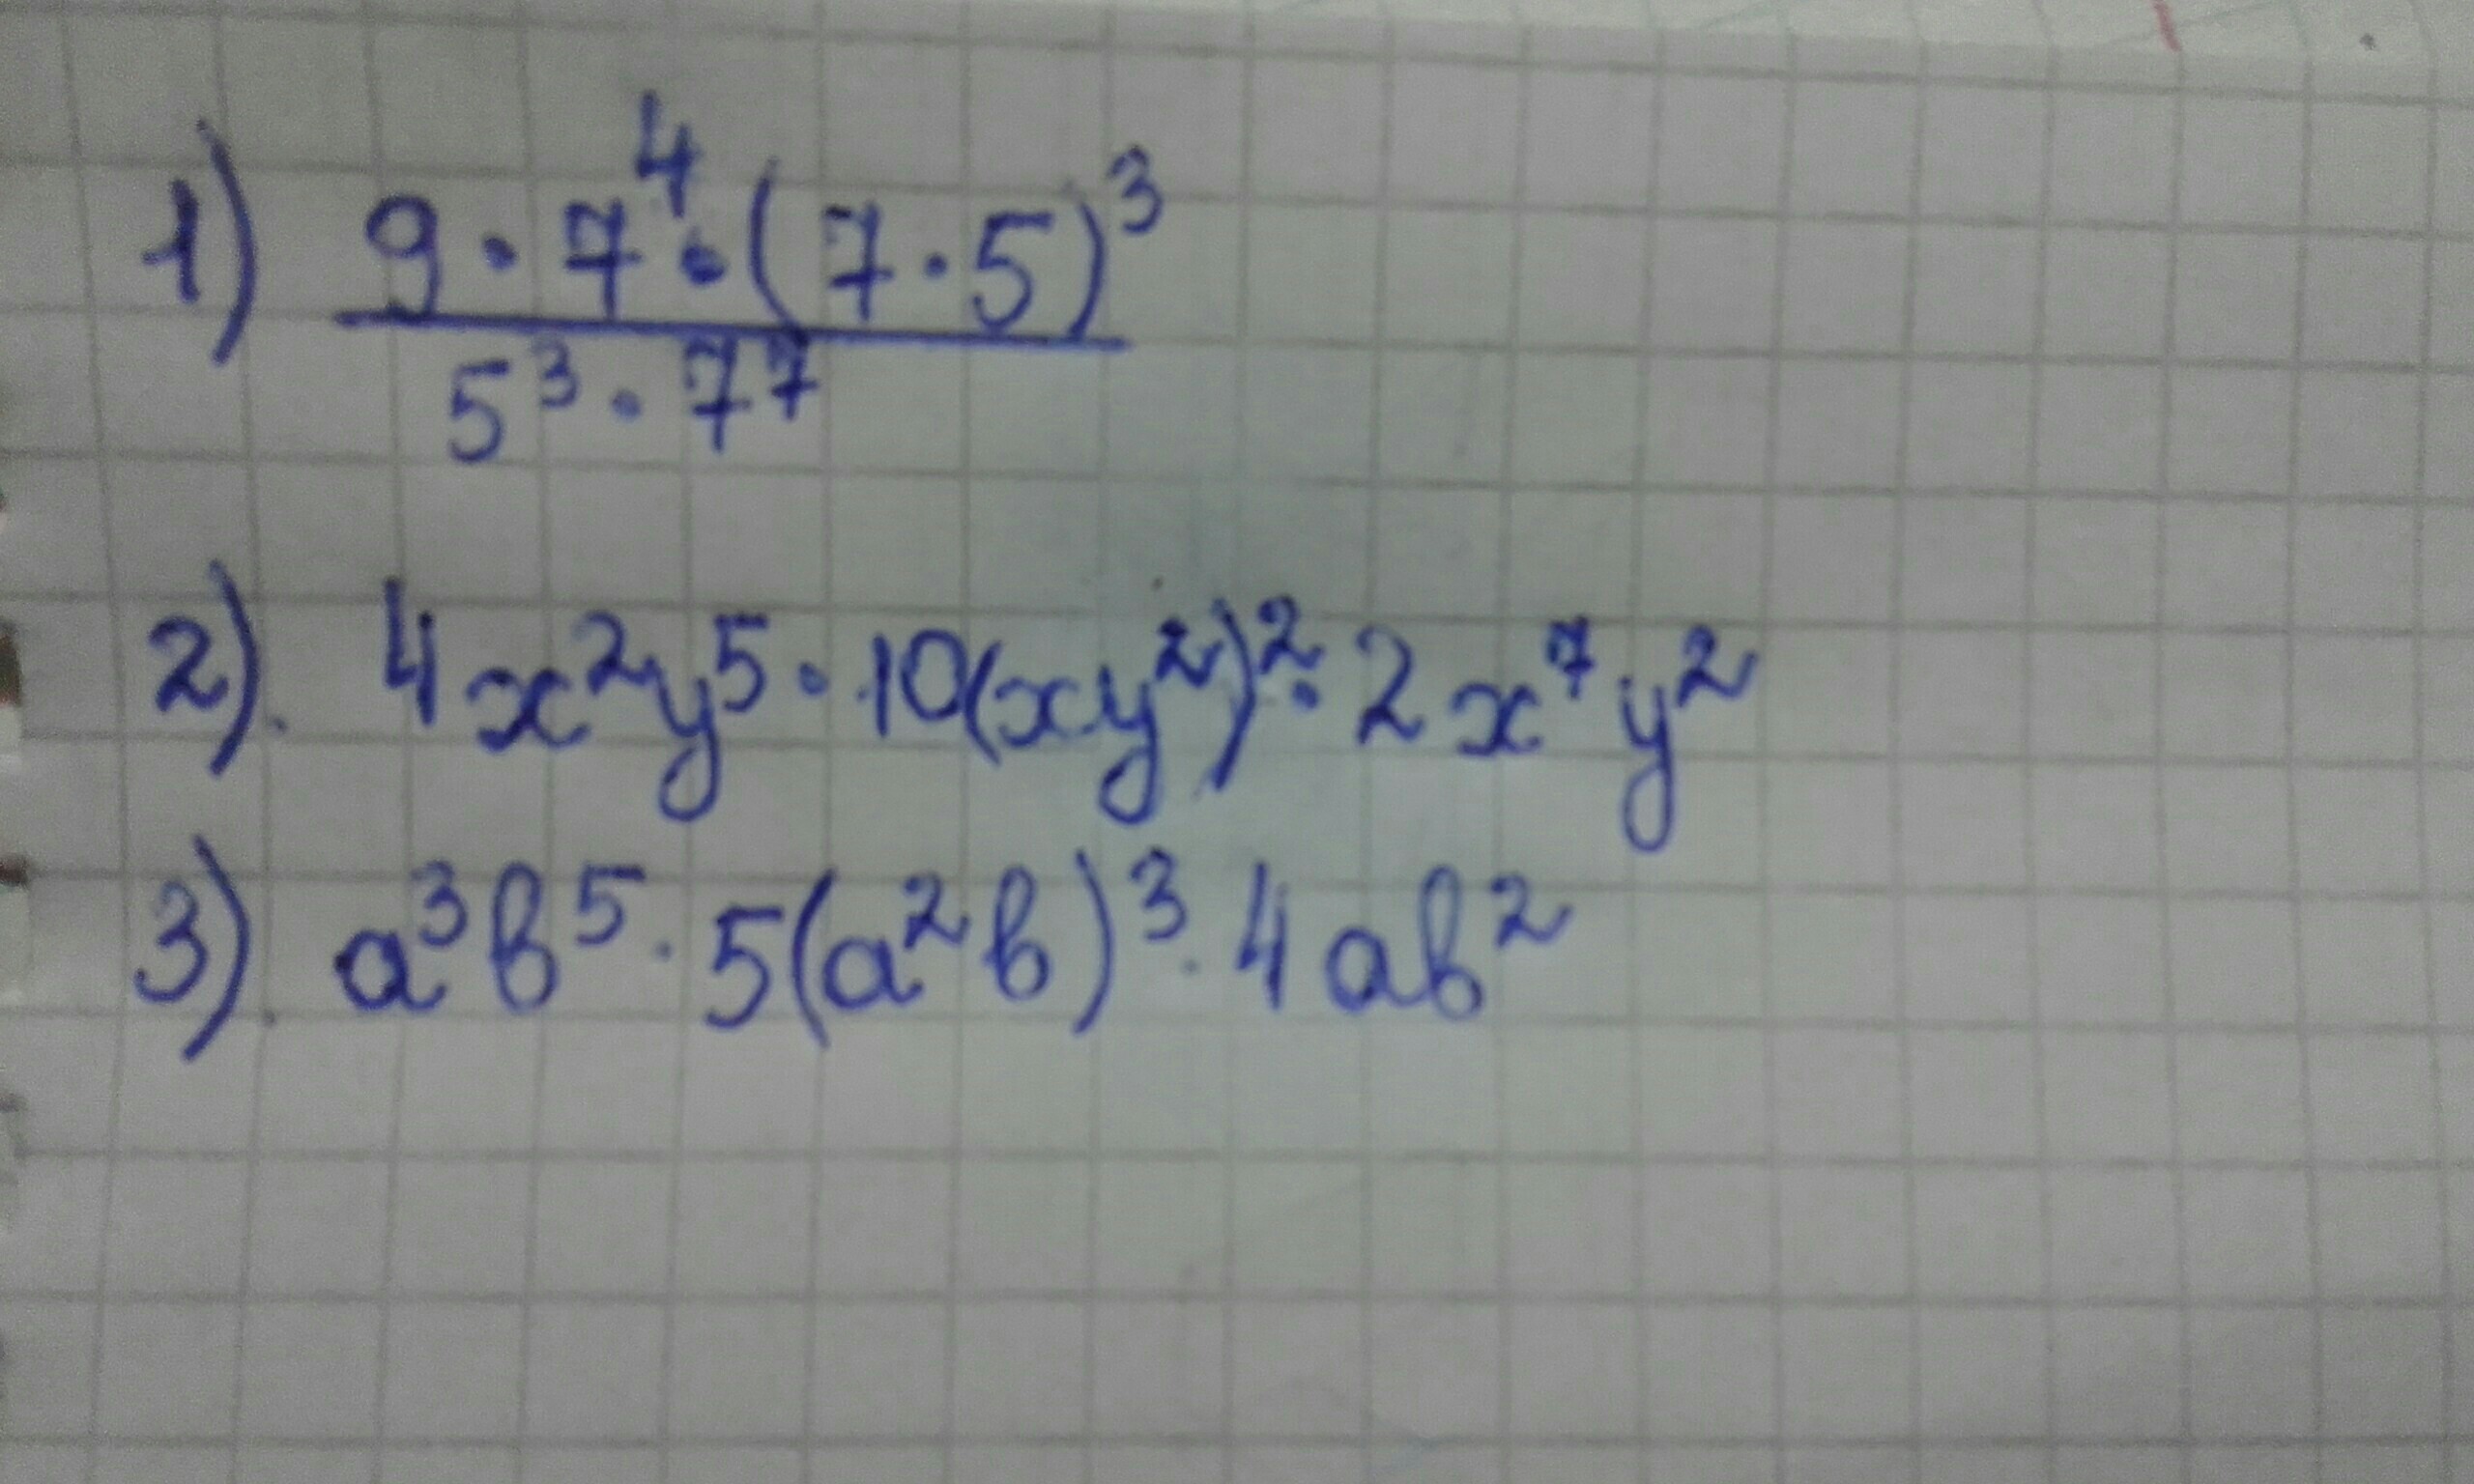 1) 9 · 7⁴ · (7 · 5)³
5³ · 7⁷
2). 4x²y⁵ · 10(xy²)² · 2x⁷y²
3). a³b⁵ · 5(a²b)³ · 4ab²